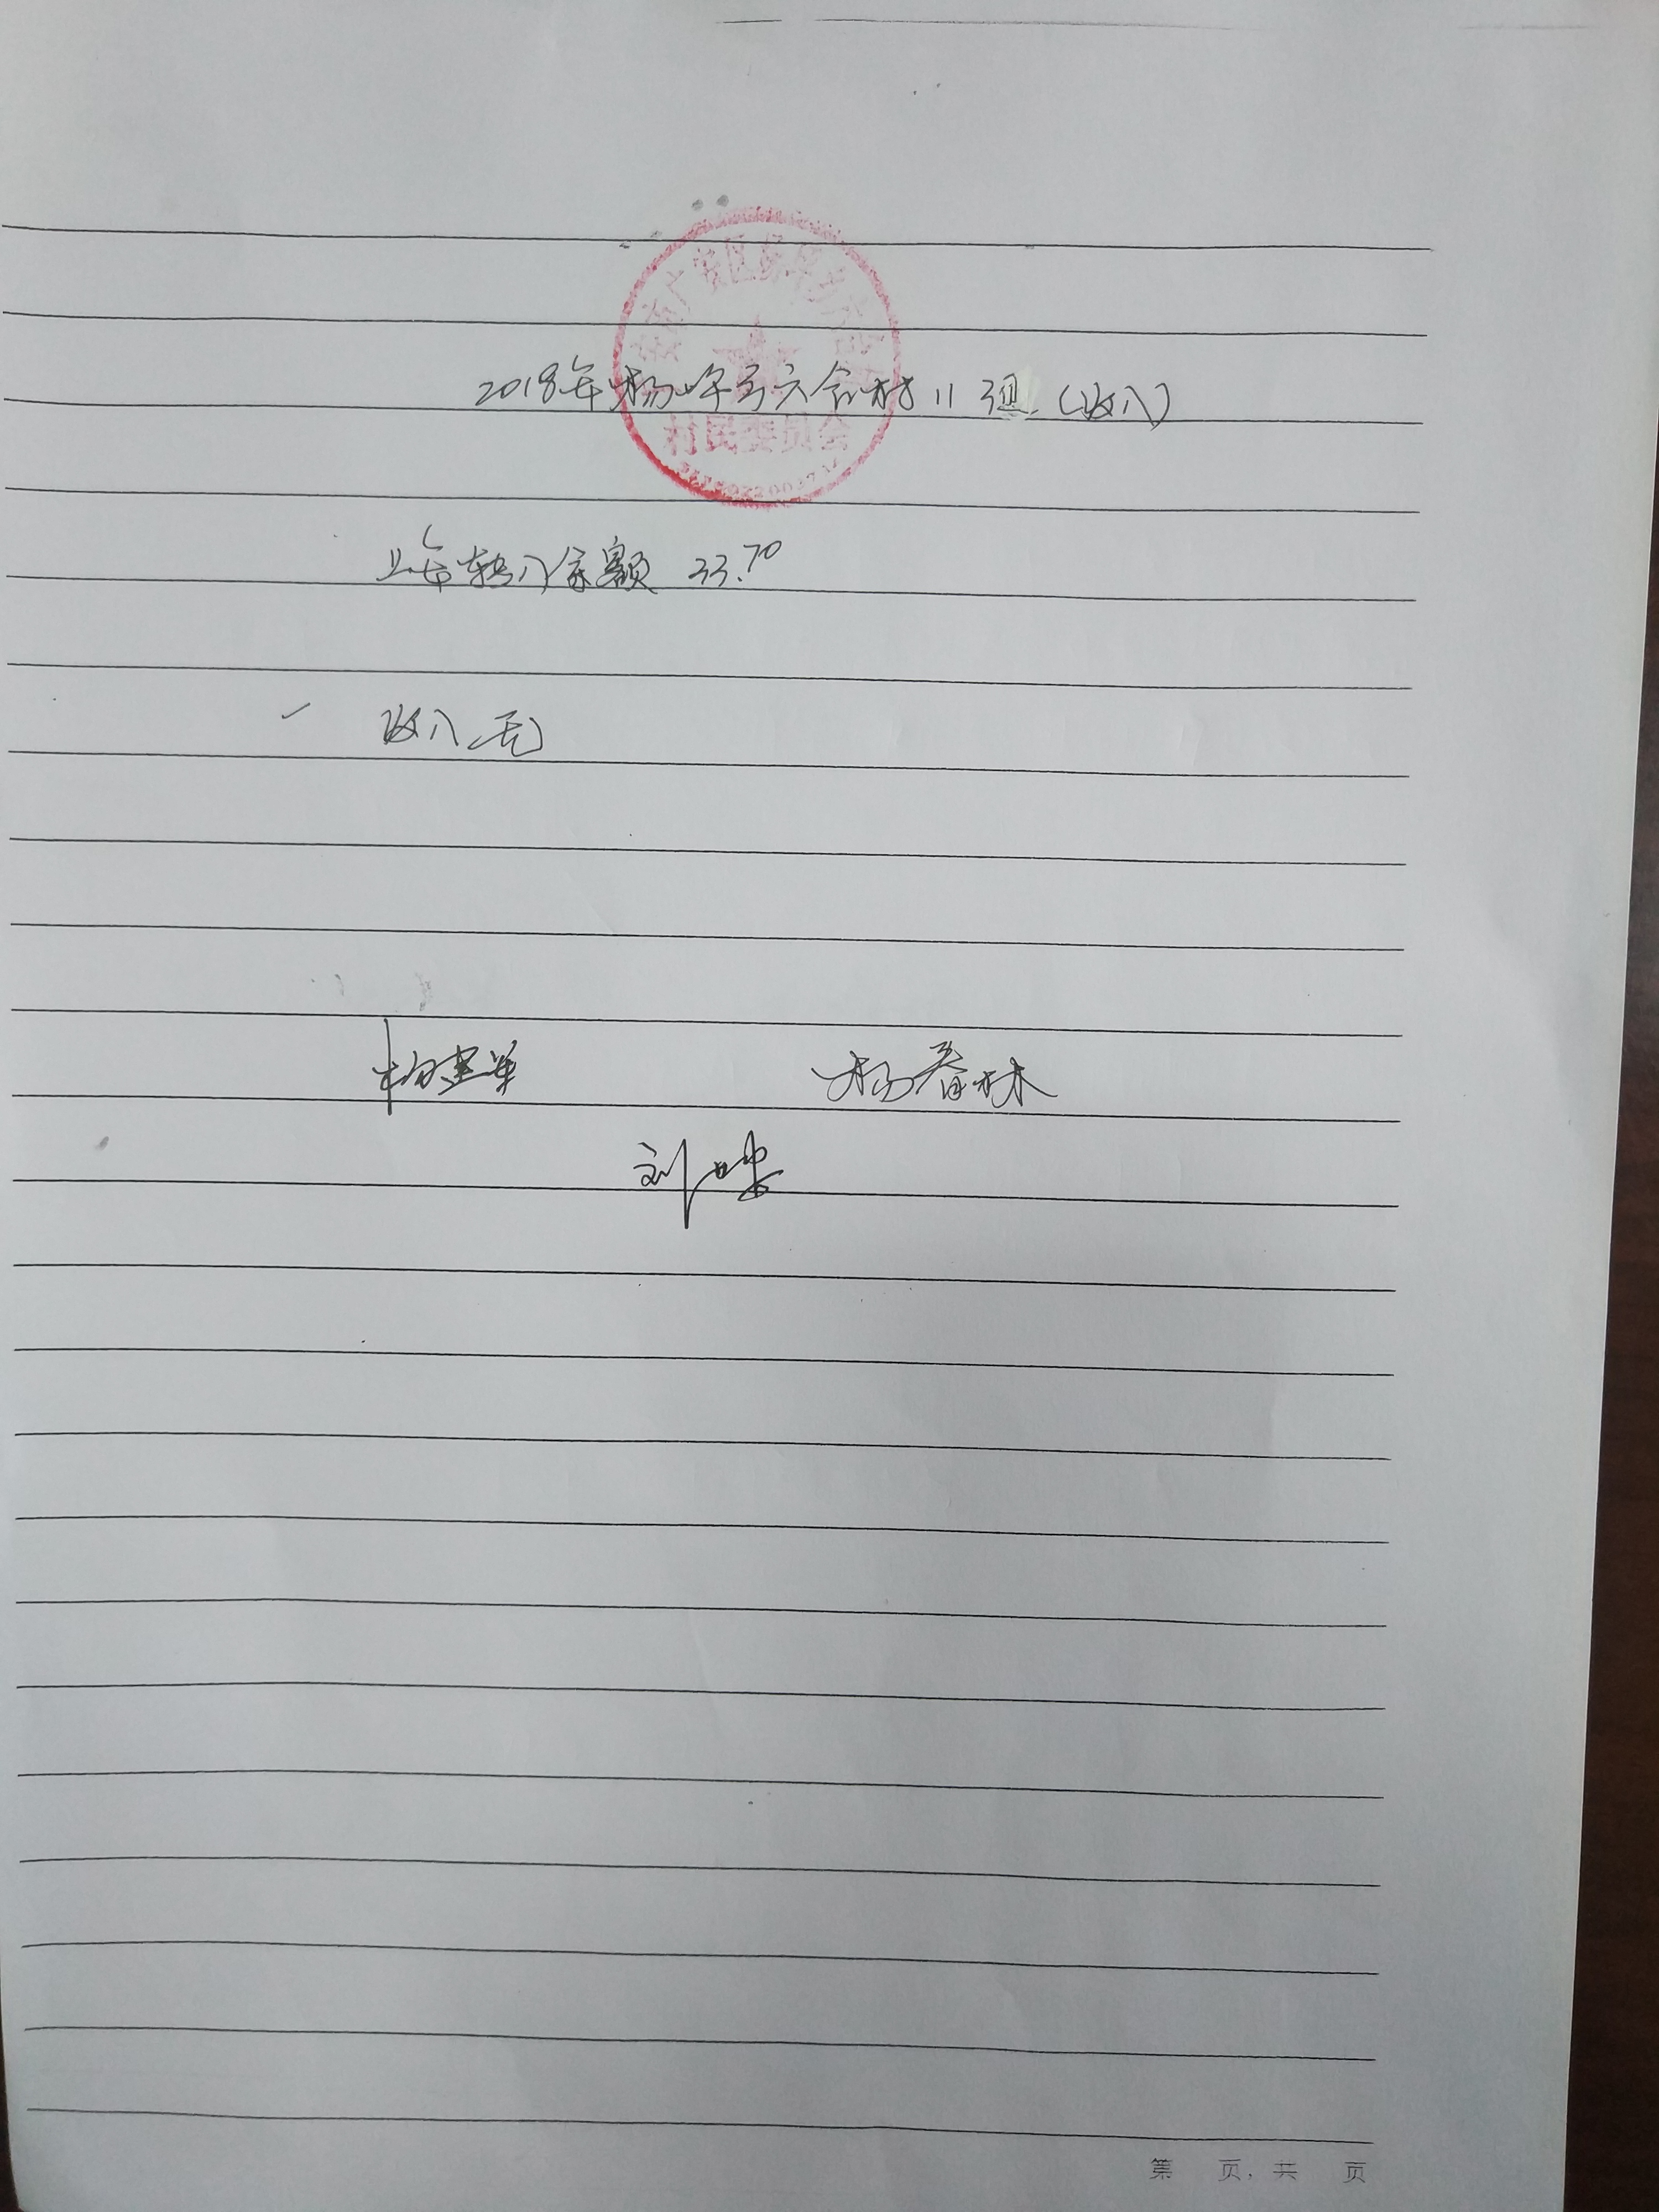 2018年杨坪乡六合村11组（收入）
村民委员会
上年转入余额 33.70
收入无
杨建华
杨春林
第 页，共 页